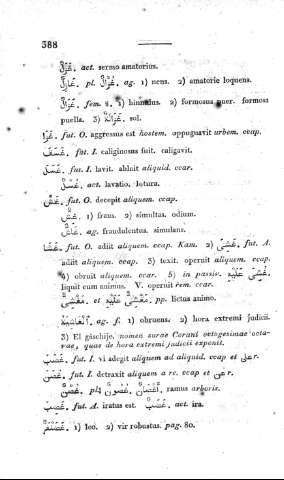 388
غَزَلٌ. act. sermo amatorius.
غَازِلٌ. pl. غُزَّلٌ. ag. 1) nens. 2) amatorie loquens.
غَزَالٌ. fem. ة. 1) hinnulus. 2) formosus puer. formosa
puella. 3) غَزَالَةٌ. sol.
غَزَا. fut. O. aggressus est hostem. appugnavit urbem. ccap.
غَسَقَ. fut. I. caliginosus fuit. caligavit.
غَسَلَ. fut. I. lavit. abluit aliquid. ccar.
غَسْلٌ. act. lavatio. lotura.
غَشَّ. fut. O. decepit aliquem. ccap.
غِشٌّ. 1) fraus. 2) simultas. odium.
غَاشٌّ. ag. fraudulentus. simulans.
غَشَا. fut. O. adiit aliquem. ccap. Kam. 2) غَشِىَ. fut. A.
adiit aliquem. ccap. 3) texit. operuit aliquem. ccap.
4) obruit aliquem. ccar. 5) in passiv. غُشِىَ عَلَيْهِ.
liquit eum animus. V. operuit rem. ccar.
مَغْشِىٌّ. et مَغْشِىٌّ عَلَيْهِ. pp. lictus animo.
اَلْغَاشِيَةُ. ag. f. 1) obruens. 2) hora extremi judicii.
3) El gâschije, nomen surae Corani octogesimae octa-
vae, quae de hora extremi judicii exponit.
غَصَبَ. fut. I. vi adegit aliquem ad aliquid. ccap et على r.
غَصَنَ. fut. I. detraxit aliquem a re. ccap et عن r.
غُصْنٌ. pl. غُصُونٌ. أَغْصَانٌ. ramus arboris.
غَضِبَ. fut. A. iratus est. غَضَبٌ. act. ira.
غَضَنْفَرٌ. 1) leo. 2) vir robustus. pag. 80.